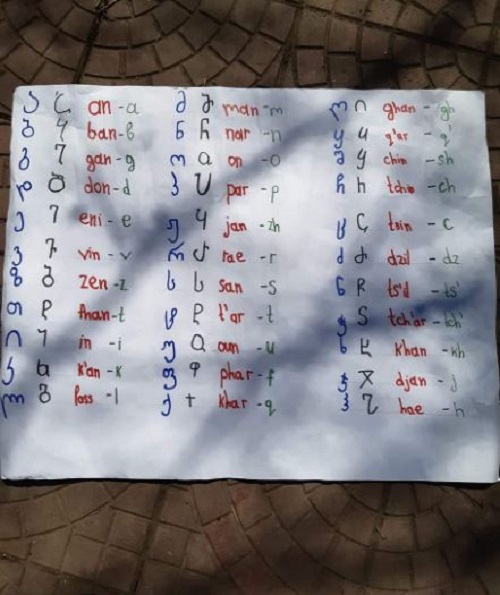 ა Ⴀ an - a
ბ Ⴁ ban - b
გ Ⴂ gan - g
დ Ⴃ don - d
ე Ⴄ eni - e
ვ Ⴅ vin - v
ზ Ⴆ zen - z
თ Ⴇ than - t
ი Ⴈ in - i
კ Ⴉ k'an - k
ლ Ⴊ lass - l
მ Ⴋ man - m
ნ Ⴌ nar - n
ო Ⴍ on - o
პ Ⴎ par - p
ჟ Ⴏ jan - zh
რ Ⴐ rae - r
ს Ⴑ san - s
ტ Ⴒ t'ar - t
უ Ⴓ oun - u
ფ Ⴔ phar - f
ქ Ⴕ khar - q
ღ Ⴖ ghan - gh
ყ Ⴗ q'ar - q'
შ Ⴘ chin - sh
ჩ Ⴙ tchin - ch
ც Ⴚ tsin - c
ძ Ⴛ dzil - dz
წ Ⴜ ts'il - ts'
ჭ Ⴝ tch'ar - ch'
ხ Ⴞ khan - kh
ჯ Ⴟ djan - j
ჰ Ⴠ hae - h